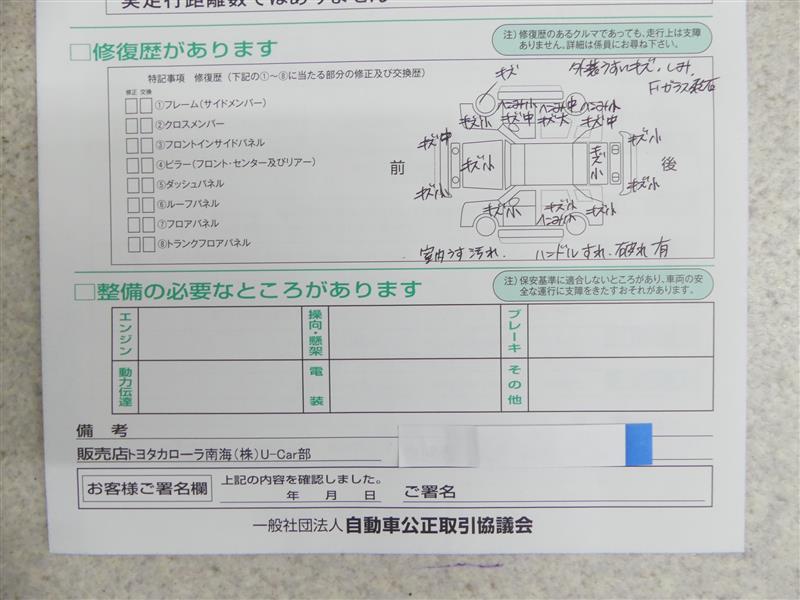 実走行距離数ではありません
□修復歴があります
注）修復歴のあるクルマであっても、走行上は支障
ありません。詳細は係員にお尋ね下さい。
特記事項 修復歴（下記の①～⑧に当たる部分の修正及び交換歴）
修正 交換
①フレーム（サイドメンバー）
②クロスメンバー
③フロントインサイドパネル
④ピラー（フロント・センター及びリアー）
⑤ダッシュパネル
⑥ルーフパネル
⑦フロアパネル
⑧トランクフロアパネル
キズ
外装うすいキズ、しみ
Fガラス飛石
ヘこみ小 ヘこみ中 ヘこみ小
キズ小 キズ中 キズ大 キズ中
キズ中 キズ小
前 キズ小 キズ小 後
キズ小 キズ小
キズ小 キズ小 キズ小
ヘこみ小
室内うす汚れ、 ハンドルすれ、破れ有
□整備の必要なところがあります
注）保安基準に適合しないところがあり、車両の安
全な運行に支障をきたすおそれがあります。
エンジン 操向・懸架 ブレーキ
動力伝達 電装 その他
備考
販売店トヨタカローラ南海（株）U-Car部
お客様ご署名欄 上記の内容を確認しました。
年 月 日 ご署名
一般社団法人 自動車公正取引協議会